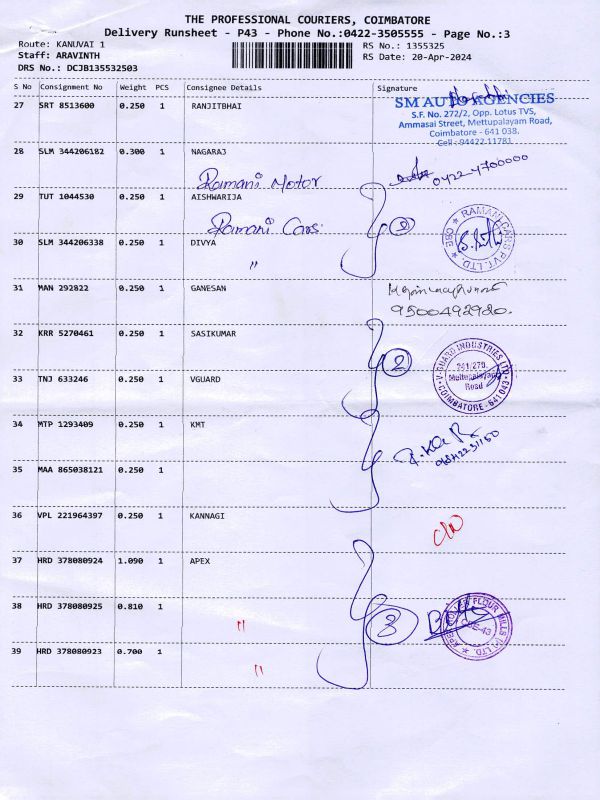 THE PROFESSIONAL COURIERS, COIMBATORE
Delivery Runsheet - P43 - Phone No.:0422-3505555 - Page No.:3
Route: KANUVAI 1
RS No.: 1355325
Staff: ARAVINTH
RS Date: 20-Apr-2024
DRS No.: DCJB135532503
S No Consignment No Weight PCS Consignee Details Signature
27 SRT 8513600 0.250 1 RANJITBHAI
SM AUTO AGENCIES
S.F. No. 272/2, Opp. Lotus TVS,
Ammasai Street, Mettupalayam Road,
Coimbatore - 641 038.
Cell : 94422 11781
28 SLM 344206182 0.300 1 NAGARAJ
Ramani Motor
0422-4700000
29 TUT 1044530 0.250 1 AISHWARIJA
Ramani Cars.
2
RAMANI CARS PVT. LTD. CBE
30 SLM 344206338 0.250 1 DIVYA
"
31 MAN 292822 0.250 1 GANESAN
9500492920.
32 KRR 5270461 0.250 1 SASIKUMAR
2
V-GUARD INDUSTRIES LTD.
241/270,
Mettupalayam
Road
COIMBATORE - 641 043
33 TNJ 633246 0.250 1 VGUARD
34 MTP 1293409 0.250 1 KMT
35 MAA 865038121 0.250 1
36 VPL 221964397 0.250 1 KANNAGI
37 HRD 378080924 1.090 1 APEX
38 HRD 378080925 0.810 1
"
3
FLOUR MILLS
CBE-43
39 HRD 378080923 0.700 1
"